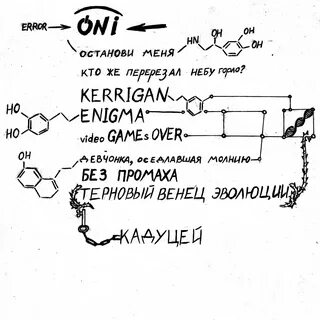 ERROR → ONi ←
HN OH OH OH
ОСТАНОВИ МЕНЯ
КТО ЖЕ ПЕРЕРЕЗАЛ НЕБУ ГОРЛО?
KERRIGAN
HO ENIGMA
HO video GAMEs OVER
OH ДЕВЧОНКА, ОСЕДЛАВШАЯ МОЛНИЮ
БЕЗ ПРОМАХА
ТЕРНОВЫЙ ВЕНЕЦ ЭВОЛЮЦИИ
КАДУЦЕЙ